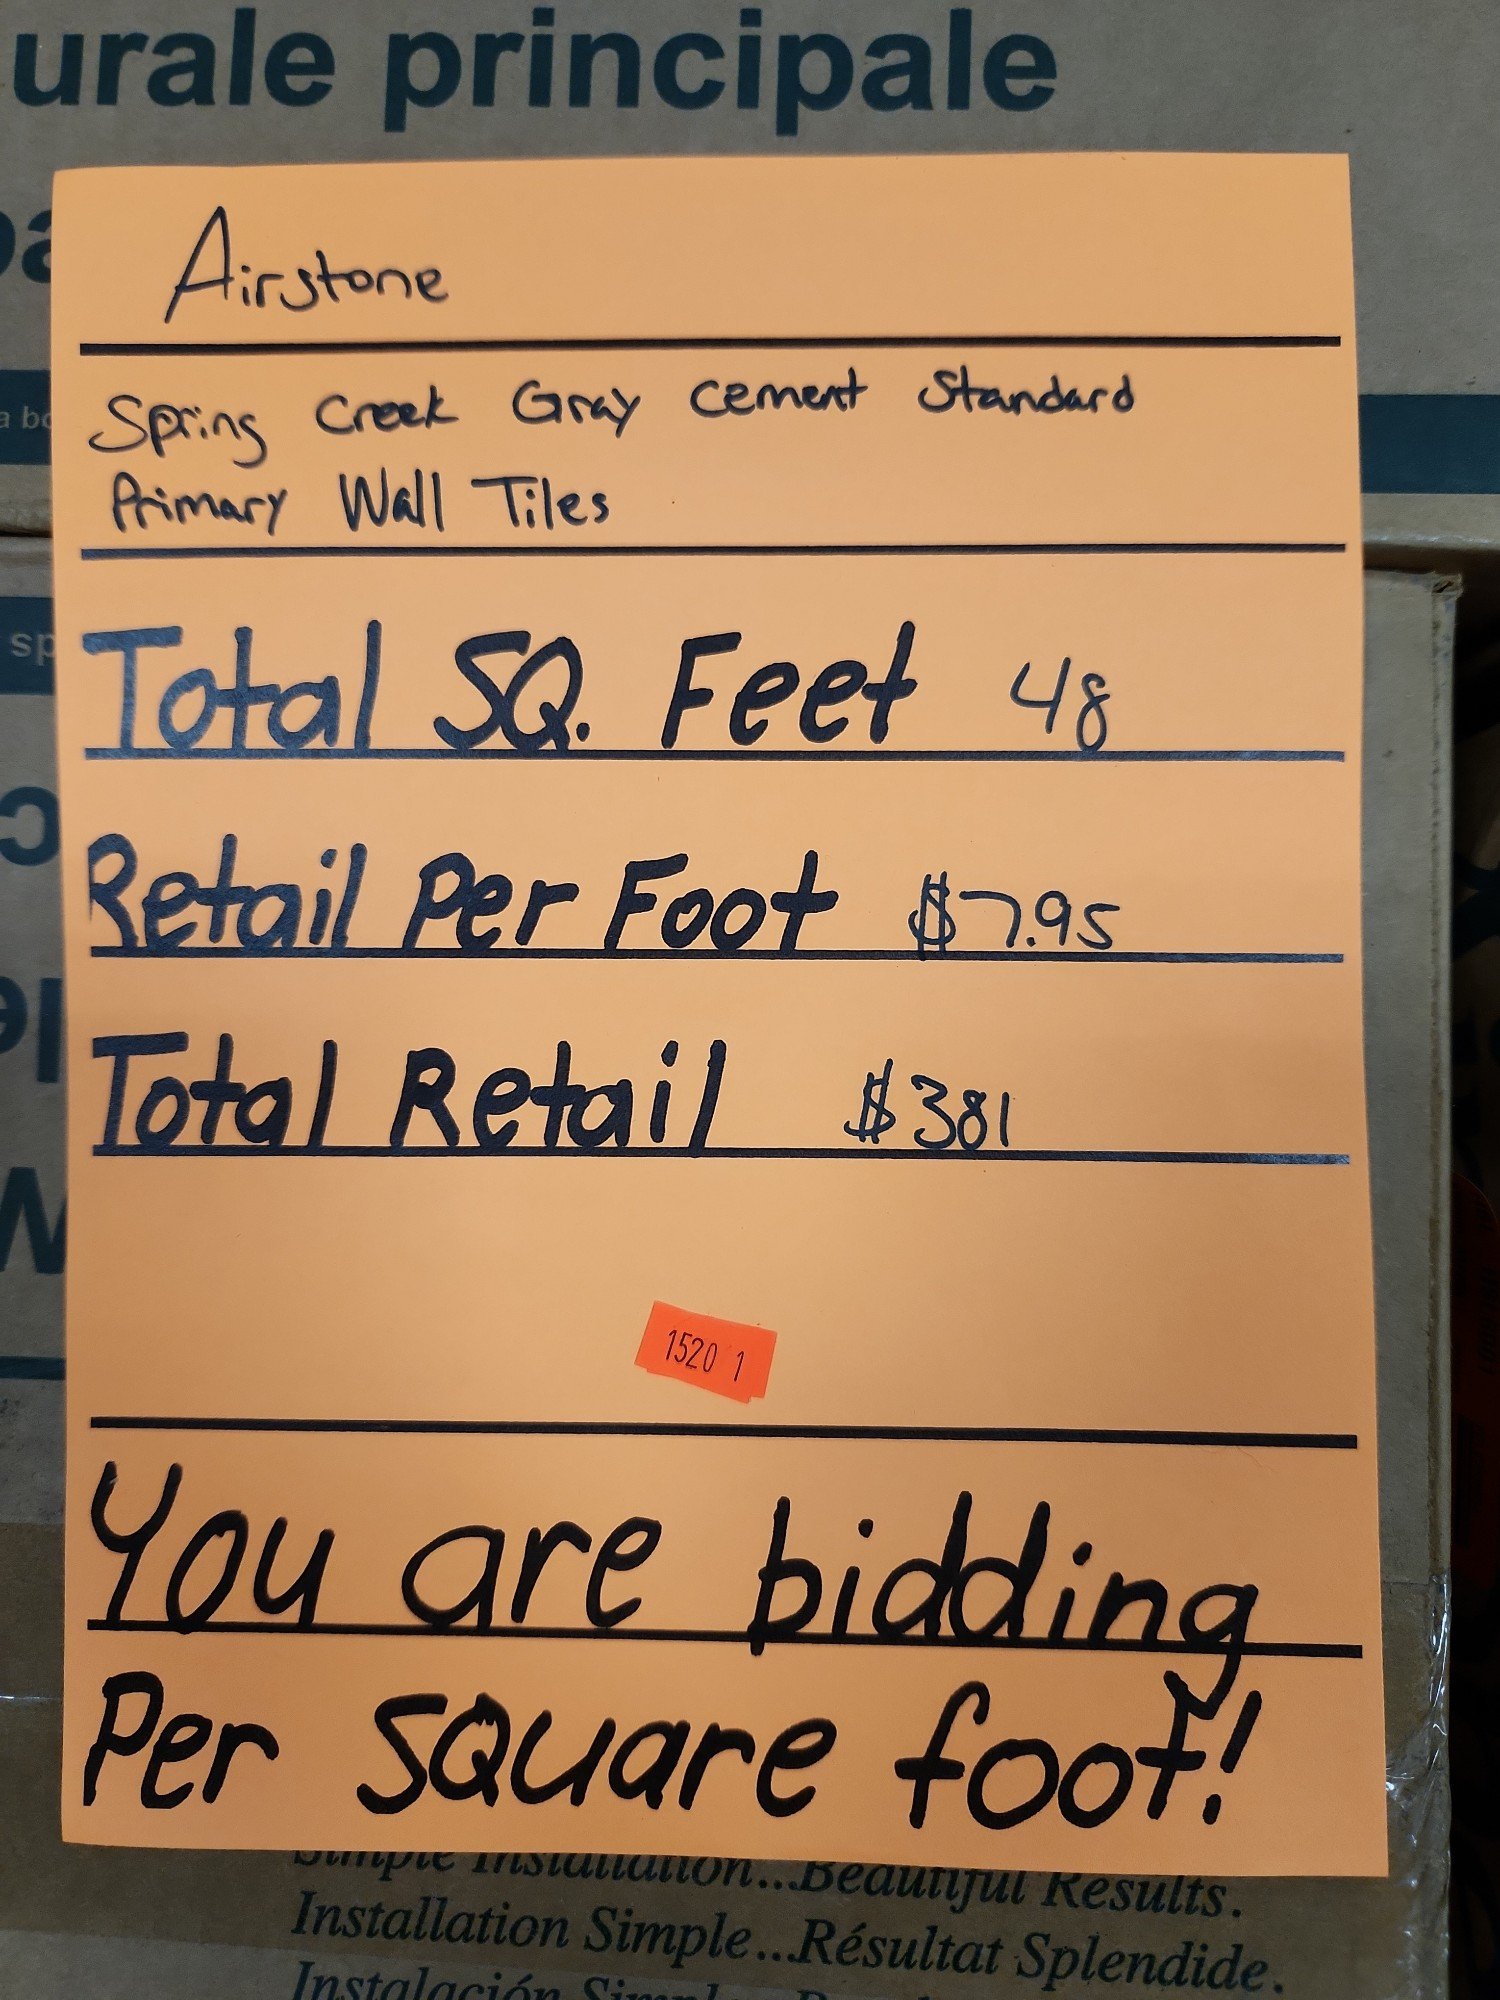 urale principale
Airstone
Spring Creek Gray Cement Standard
Primary Wall Tiles
Total SQ. Feet 48
Retail Per Foot $7.95
Total Retail $381
1520 1
You are bidding
Per square foot!
Simple Installation...Beautiful Results.
Installation Simple...Résultat Splendide.
Instalación